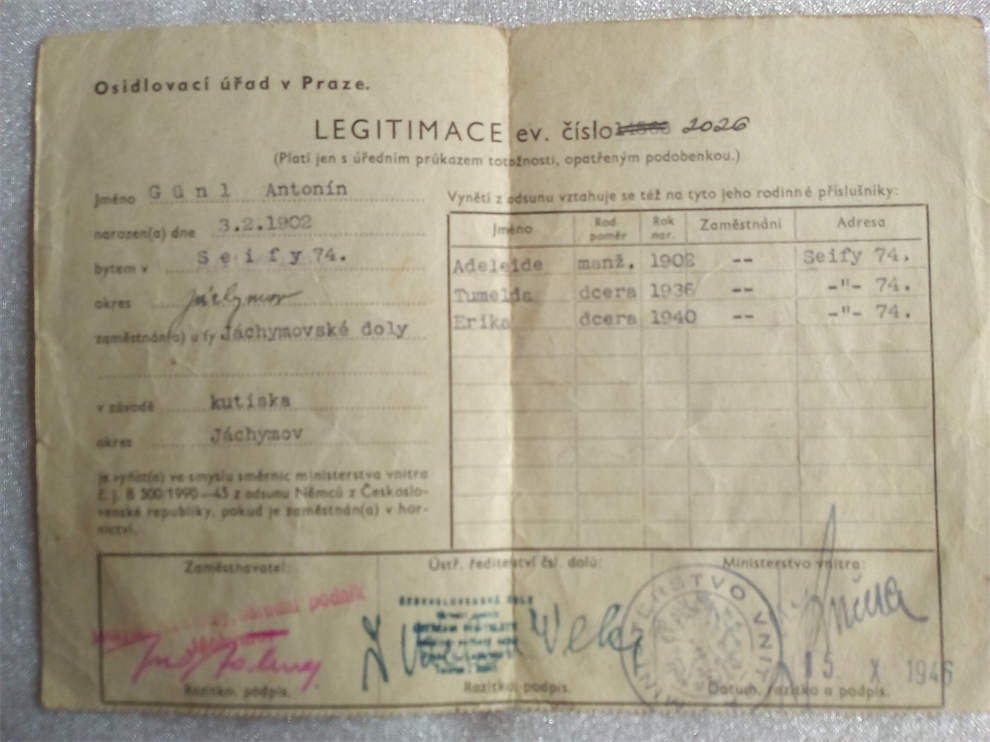 Osidlovací úřad v Praze.
LEGITIMACE ev. číslo 2026
(Platí jen s úředním průkazem totožnosti, opatřeným podobenkou.)
Jméno Günl Antonín
narozen(a) dne 3.2.1902
bytem v Seify 74.
okres Jáchymov
zaměstnán(a) u fy Jáchymovské doly
v závodě kutiska
okres Jáchymov
je vyňat(a) ve smyslu směrnic ministerstva vnitra
č. j. B 300/1990—45 z odsunu Němců z Českoslo-
venské republiky, pokud je zaměstnán(a) v hor-
nictví.
Vynětí z odsunu vztahuje se též na tyto jeho rodinné příslušníky:
Jméno Rod. poměr Rok nar. Zaměstnání Adresa
Adeleide manž. 1902 -- Seify 74.
Tumelda dcera 1936 -- -"- 74.
Erika dcera 1940 -- -"- 74.
Zaměstnavatel: Ústř. ředitelství čsl. dolů: Ministerstvo vnitra:
národní podnik
ČESKOSLOVENSKÉ DOLY
MINISTERSTVO VNITRA
15. X 1946
Razítko, podpis. Razítko, podpis. Datum, razítko a podpis.